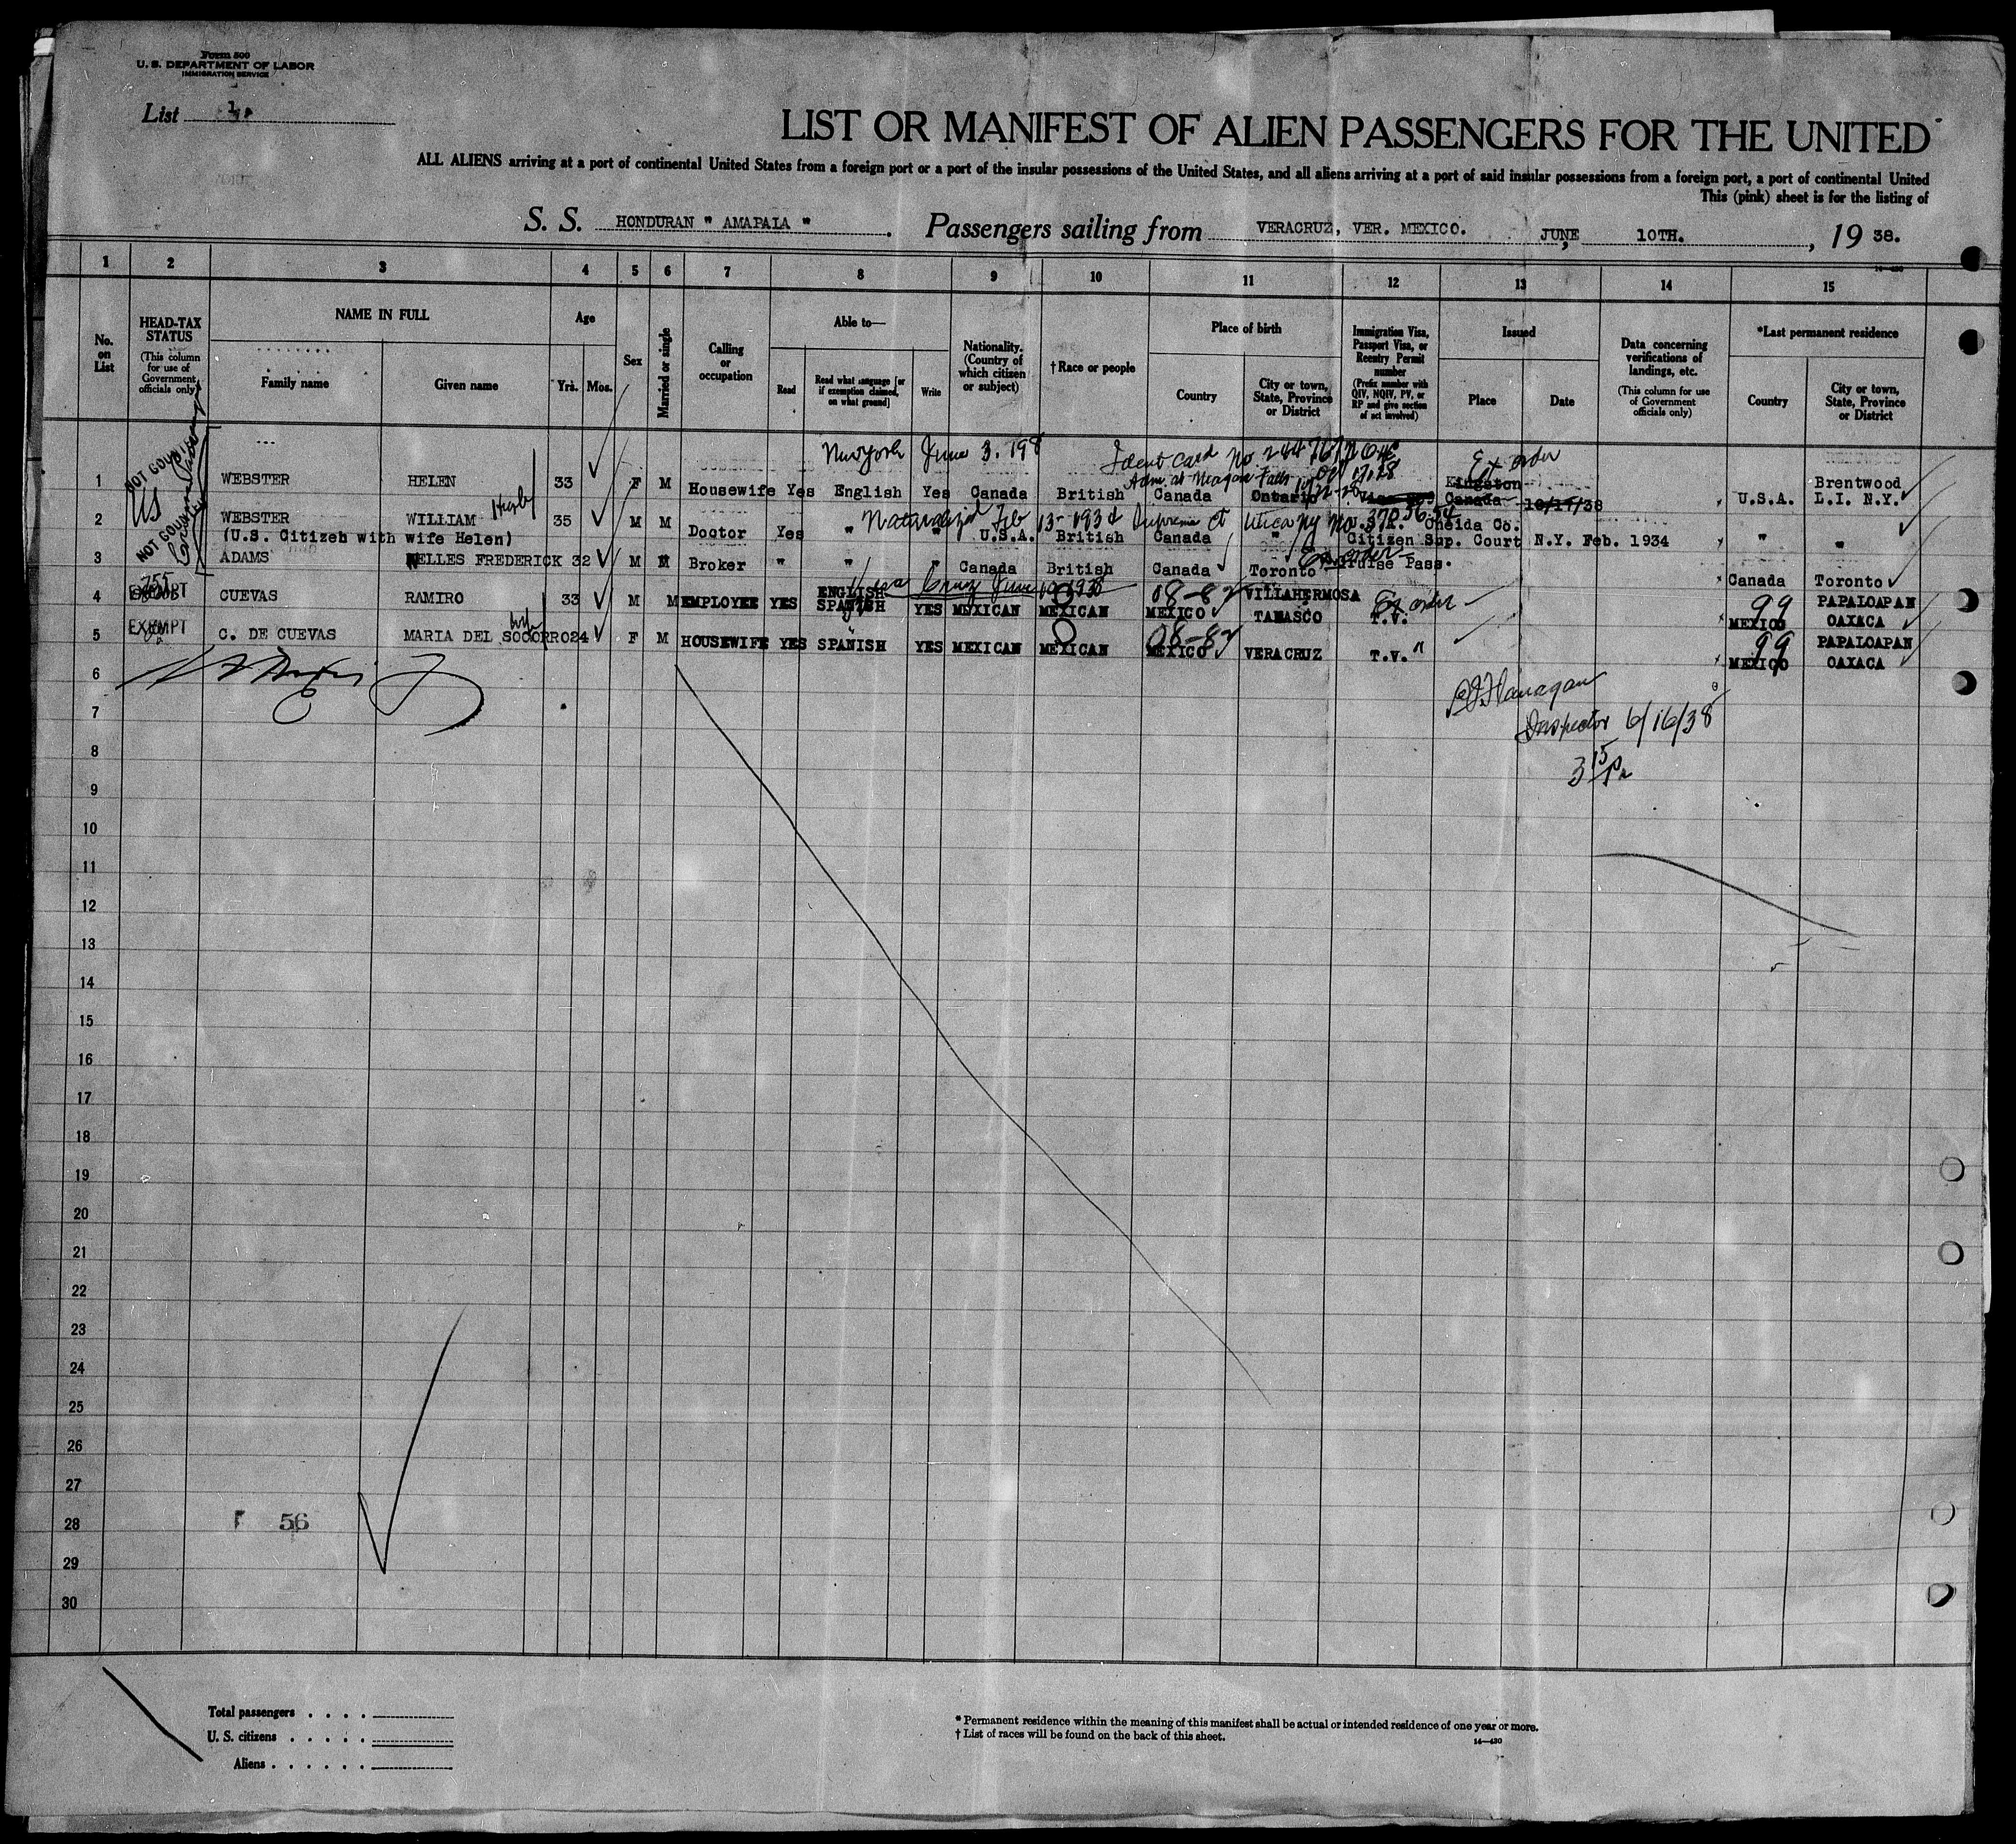 Form 500
U. S. DEPARTMENT OF LABOR
IMMIGRATION SERVICE
List 1
LIST OR MANIFEST OF ALIEN PASSENGERS FOR THE UNITED
ALL ALIENS arriving at a port of continental United States from a foreign port or a port of the insular possessions of the United States, and all aliens arriving at a port of said insular possessions from a foreign port, a port of continental United
This (pink) sheet is for the listing of
S. S. HONDURAN " AMAPALA " . Passengers sailing from VERACRUZ, VER. MEXICO. JUNE 10TH. , 19 38.
1 2 3 4 5 6 7 8 9 10 11 12 13 14 15
No. on List
HEAD-TAX STATUS (This column for use of Government officials only)
NAME IN FULL
Family name
Given name
Age
Yrs. Mos.
Sex
Married or single
Calling or occupation
Able to—
Read
Read what language [or if exemption claimed, on what ground]
Write
Nationality. (Country of which citizen or subject)
† Race or people
Place of birth
Country
City or town, State, Province or District
Immigration Visa, Passport Visa, or Reentry Permit number (Prefix number with QIV, NQIV, PV, or RP and give section of act involved)
Issued
Place
Date
Data concerning verifications of landings, etc. (This column for use of Government officials only)
*Last permanent residence
Country
City or town, State, Province or District
New York June 3. 198
Ident card No
Adm. at Niagara Falls
Ex order
NOT COUNTED
1 WEBSTER HELEN 33 F M Housewife Yes English Yes Canada British Canada Ontario Kingston Canada 10/17/38 U.S.A. Brentwood L.I. N.Y.
US
Husb
Naturalized Feb 13-1934 Supreme Ct Utica NY No.
2 WEBSTER WILLIAM 35 M M Doctor Yes " " U.S.A. British Canada " Oneida Co. " "
(U.S. Citizen with wife Helen) Citizen Sup. Court N.Y. Feb. 1934
NOT COUNTED
Ex order
3 ADAMS WELLES FREDERICK 32 M M Broker " " " Canada British Canada Toronto Cruise Pass. Canada Toronto
Vera Cruz June 10 1938
EXEMPT
4 CUEVAS RAMIRO 33 M M EMPLOYEE YES ENGLISH SPANISH YES MEXICAN MEXICAN MEXICO VILLAHERMOSA TABASCO T.V. Ex order MEXICO PAPALOAPAN OAXACA
08-82
99
EXEMPT
wife
5 C. DE CUEVAS MARIA DEL SOCORRO 24 F M HOUSEWIFE YES SPANISH YES MEXICAN MEXICAN MEXICO VERACRUZ T.V. " MEXICO PAPALOAPAN OAXACA
08-82
99
6
Flanagan
7
Inspector 6/16/38
8
3 15 P
9
10
11
12
13
14
15
16
17
18
19
20
21
22
23
24
25
26
27
28
56
29
30
Total passengers . . . .
U. S. citizens . . . . .
Aliens . . . . . .
* Permanent residence within the meaning of this manifest shall be actual or intended residence of one year or more.
† List of races will be found on the back of this sheet.
14—430